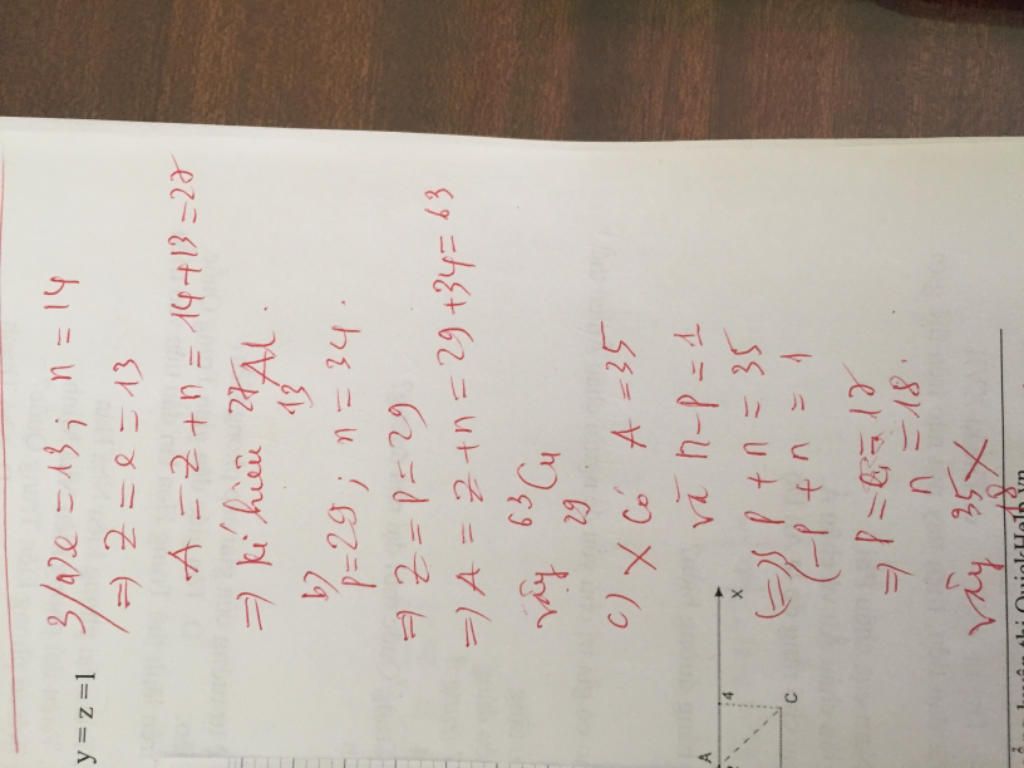 y = z = 1
3/ a) e = 13 ; n = 14
=> Z = e = 13
A = Z + n = 14 + 13 = 27
=> kí hiệu 27 13 Al.
b)
p = 29 ; n = 34.
=> Z = p = 29
=> A = Z + n = 29 + 34 = 63
vậy 63 29 Cu
c) X có A = 35
và n - p = 1
(=> { p + n = 35
{ -p + n = 1
=> p = 17
n = 18.
vậy 35 18 X
A
4
x
C